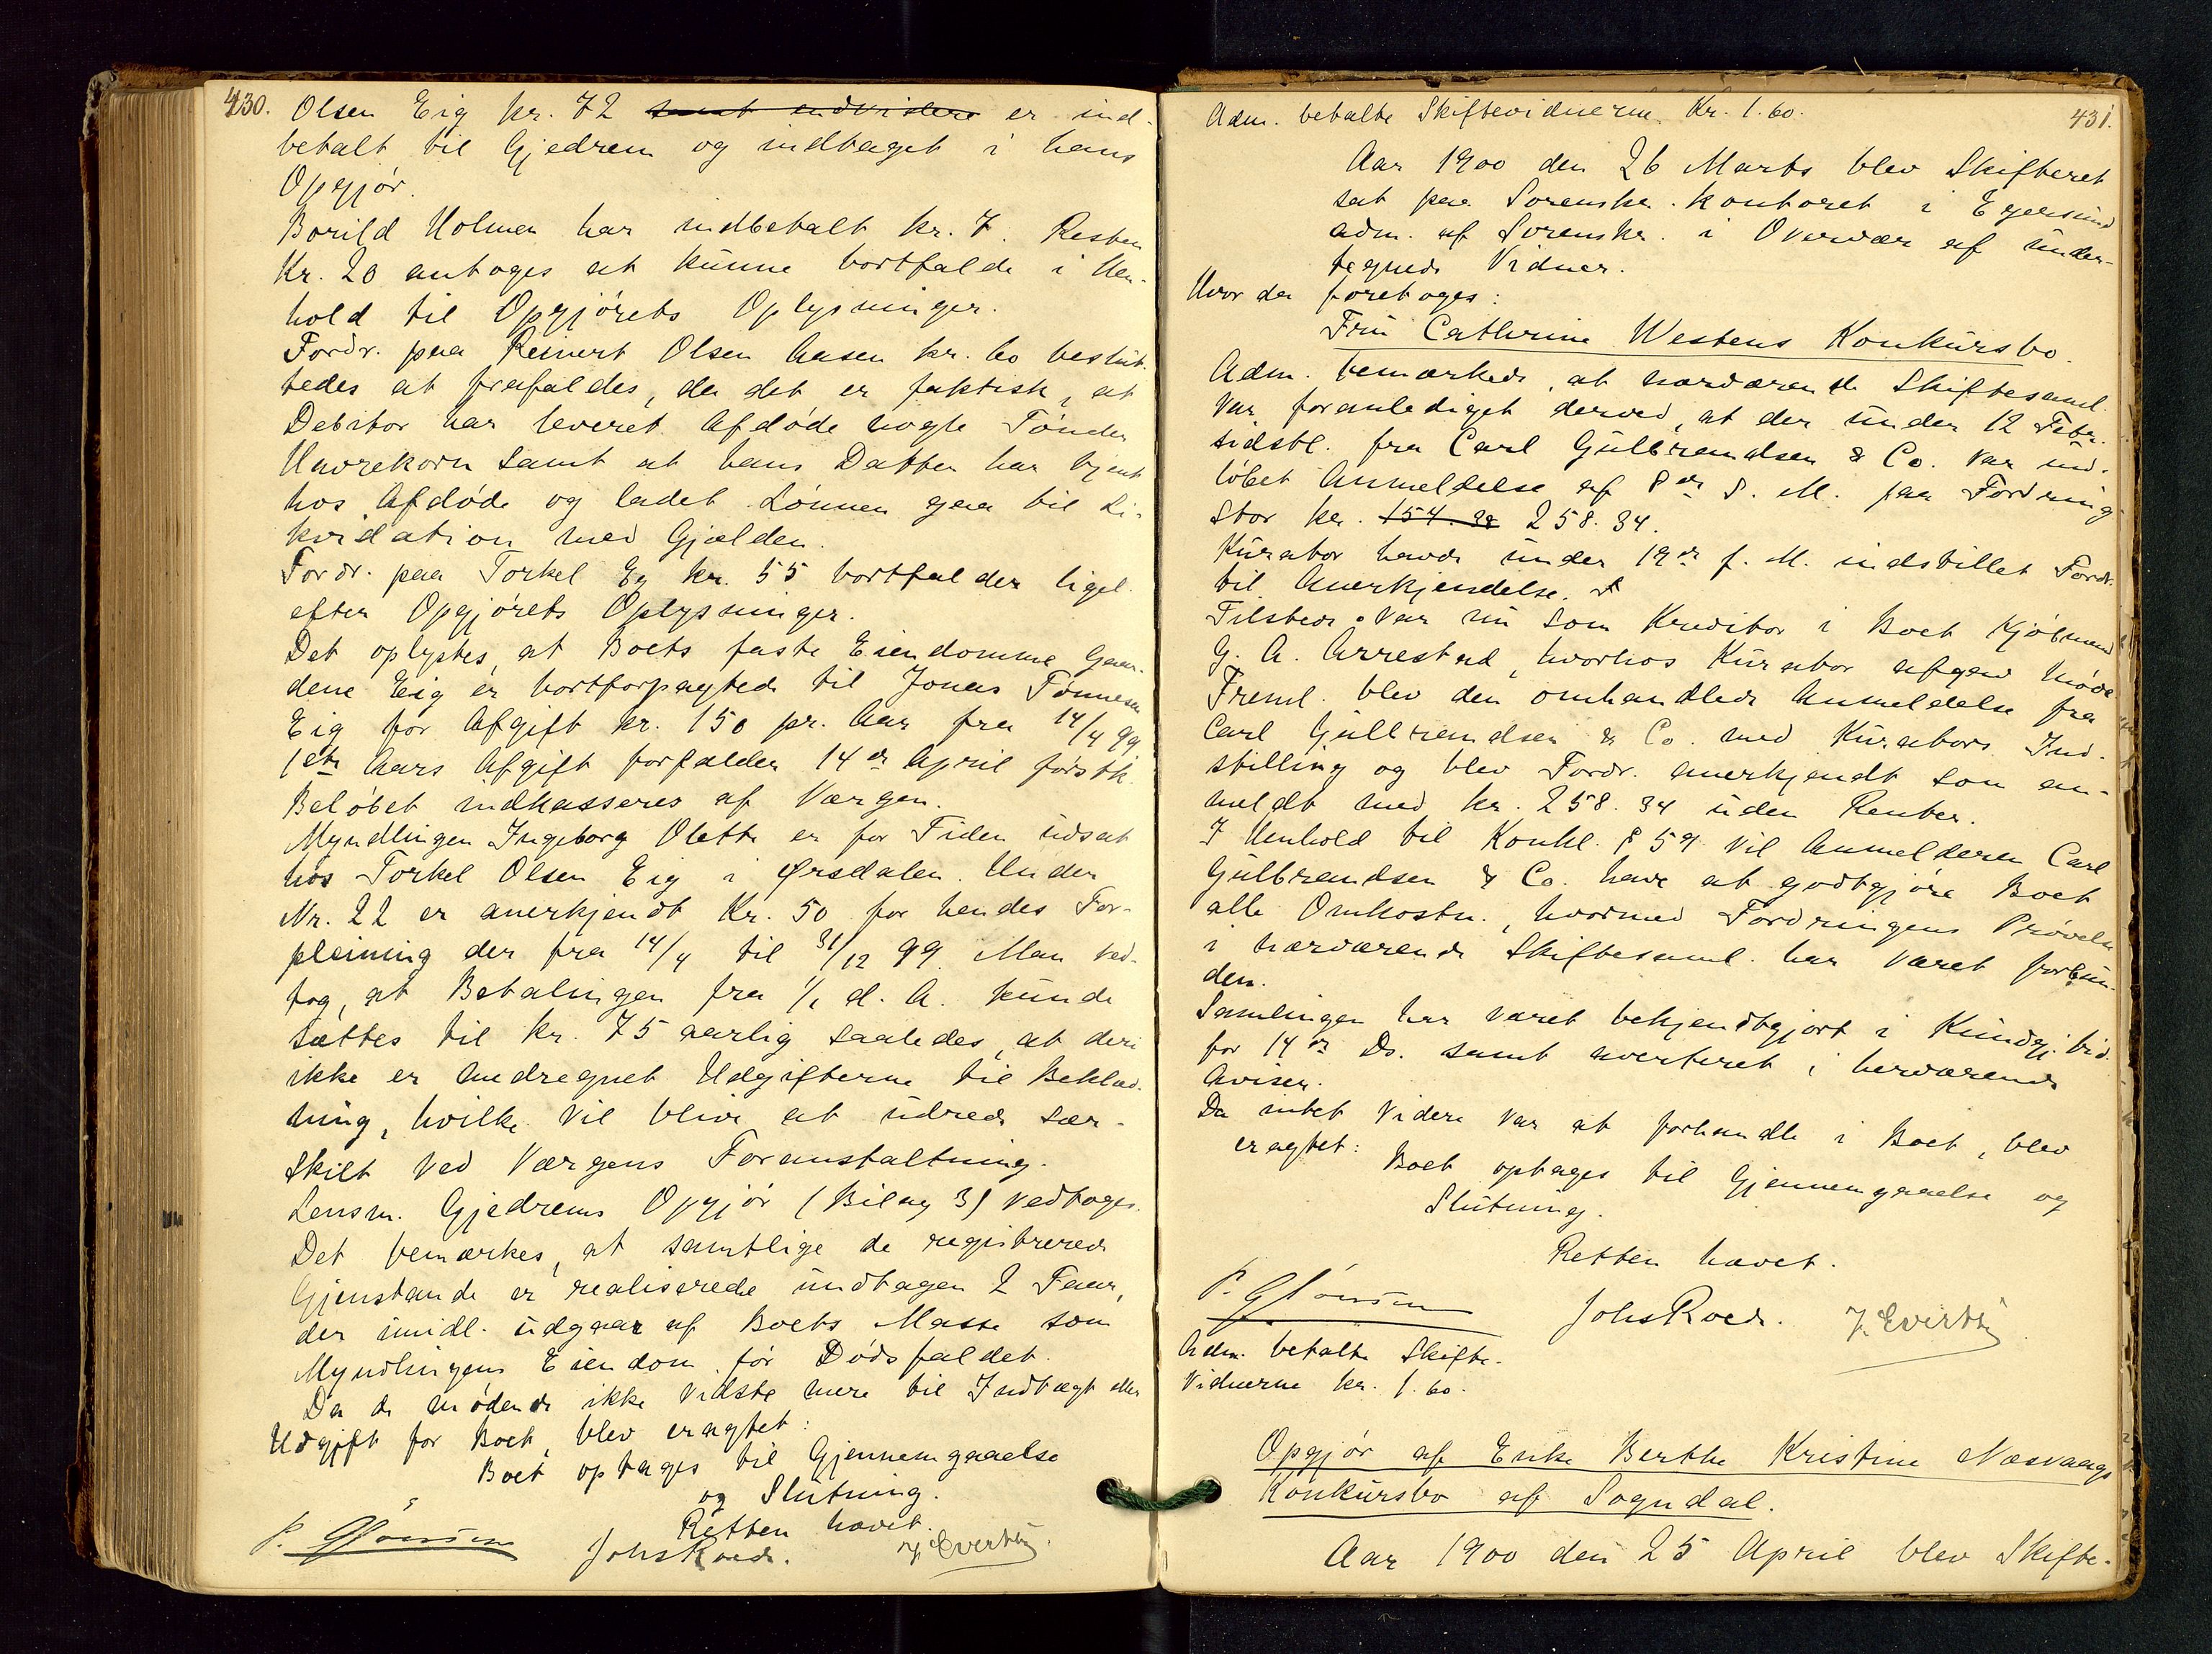 430.
Olsen Eig kr. 72 samt endvidere er ind-
betalt til Gjedrem og indtaget i hans
Opgjør.
Borild Holmen har indbetalt kr. 7. Resten
Kr. 20 antoges at kunne bortfalde i Hen-
hold til Opgjørets Oplysninger.
Fordr. paa Reinert Olsen Aasen kr. 60 beslut-
tedes at frafaldes, da det er faktisk, at
Debitor har leveret Afdøde nogle Tønder
Havrekorn samt at hans Datter har tjent
hos Afdøde og ladet Lønnen gaa til Li-
kvidation med Gjælden.
Fordr. paa Torkel Eg kr. 55 bortfalder ligel.
efter Opgjørets Oplysninger.
Det oplystes, at Boets faste Eiendomme Gaar-
dene Eig er bortforpagtede til Jonas Tønnesen
Eig for Afgift kr. 150 pr. Aar fra 14/4 99
1ste Aars Afgift forfalder 14de April førstk.
Beløbet indkasseres af Værgen.
Myndlingen Ingeborg Olette er for Tiden udsat
hos Torkel Olsen Eig i Ørsdalen. Under
Nr. 22 er anerkjendt Kr. 50 for hendes For-
pleining der fra 14/4 til 31/12 99. Man ved-
tog, at Betalingen fra 1/1 d. A. kunde
sættes til kr. 75 aarlig saaledes, at deri
ikke er medregnet Udgifterne til Beklæd-
ning, hvilke vil blive at udrede sær-
skilt ved Værgens Foranstaltning.
Lensm. Gjedrems Opgjør (Bilag 3) vedtoges.
Det bemærkes, at samtlige de registrerede
Gjenstande er realiserede undtagen 2 Faar,
der imidl. udgaar af Boets Masse som
Myndlingens Eiendom før Dødsfaldet.
Da de mødende ikke vidste mere til Indtægt eller
Udgift for Boet, blev eragtet:
Boet optages til Gjennemgaaelse
og Slutning.
Retten hævet.
Johs Roed.
431.
Adm. betalte Skiftevidnerne Kr. 1.60.
Aar 1900 den 26 Marts blev Skifteret
sat paa Sorenskr. kontoret i Egersund
adm. af Sorenskr. i Overvær af under-
tegnede Vidner.
Hvor da foretoges:
Fru Cathrine Westens Konkursbo.
Adm. bemærkede, at nærværende Skiftesaml.
var foranlediget derved, at der under 12 Febr.
sidstl. fra Carl Gulbrandsen & Co. var ind-
løbet Anmeldelse af 8de s. M. paa Fordring
stor kr. 154. 38 258. 34.
Kurator havde under 19de f. M. indstillet Fordr.
til Anerkjendelse. F
Tilstede var nu som Kreditor i Boet Kjøbmand
G. A. Arrestad, hvorhos Kurator afgav Møde
Freml. blev den omhandlede Anmeldelse fra
Carl Gulbrandsen & Co. med Kurators Ind-
stilling og blev Fordr. anerkjendt som an-
meldt med kr. 258. 34 uden Renter.
I Henhold til Konkl. § 59 vil Anmelderen Carl
Gulbrandsen & Co. have at godtgjøre Boet
alle Omkostn., hvormed Fordringens Prøvelse
i nærværende Skiftesaml. har været forbun-
den.
Samlingen har været bekjendtgjort i Kundgj. tid.
for 14de Ds. samt averteret i herværende
Aviser.
Da intet videre var at forhandle i Boet, blev
eragtet:
Boet optages til Gjennemgaaelse og
Slutning.
Retten hævet.
Johs Roed.
Adm. betalte Skifte-
vidnerne kr. 1.60.
Opgjør af Enke Berthe Kristine Næsvaags
Konkursbo af Sogndal.
Aar 1900 den 25 April blev Skifte-